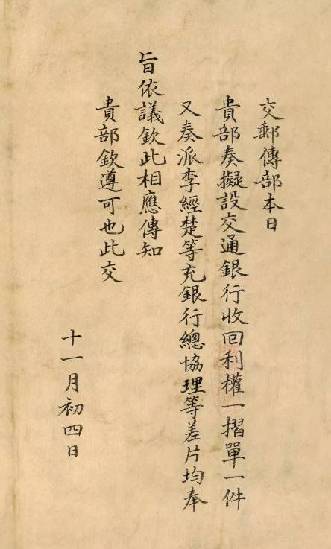 交郵傳部本日
貴部奏擬設交通銀行收回利權一摺單一件
又奏派李經楚等充銀行總協理等差片均奉
旨依議欽此相應傳知
貴部欽遵可也此交
十一月初四日